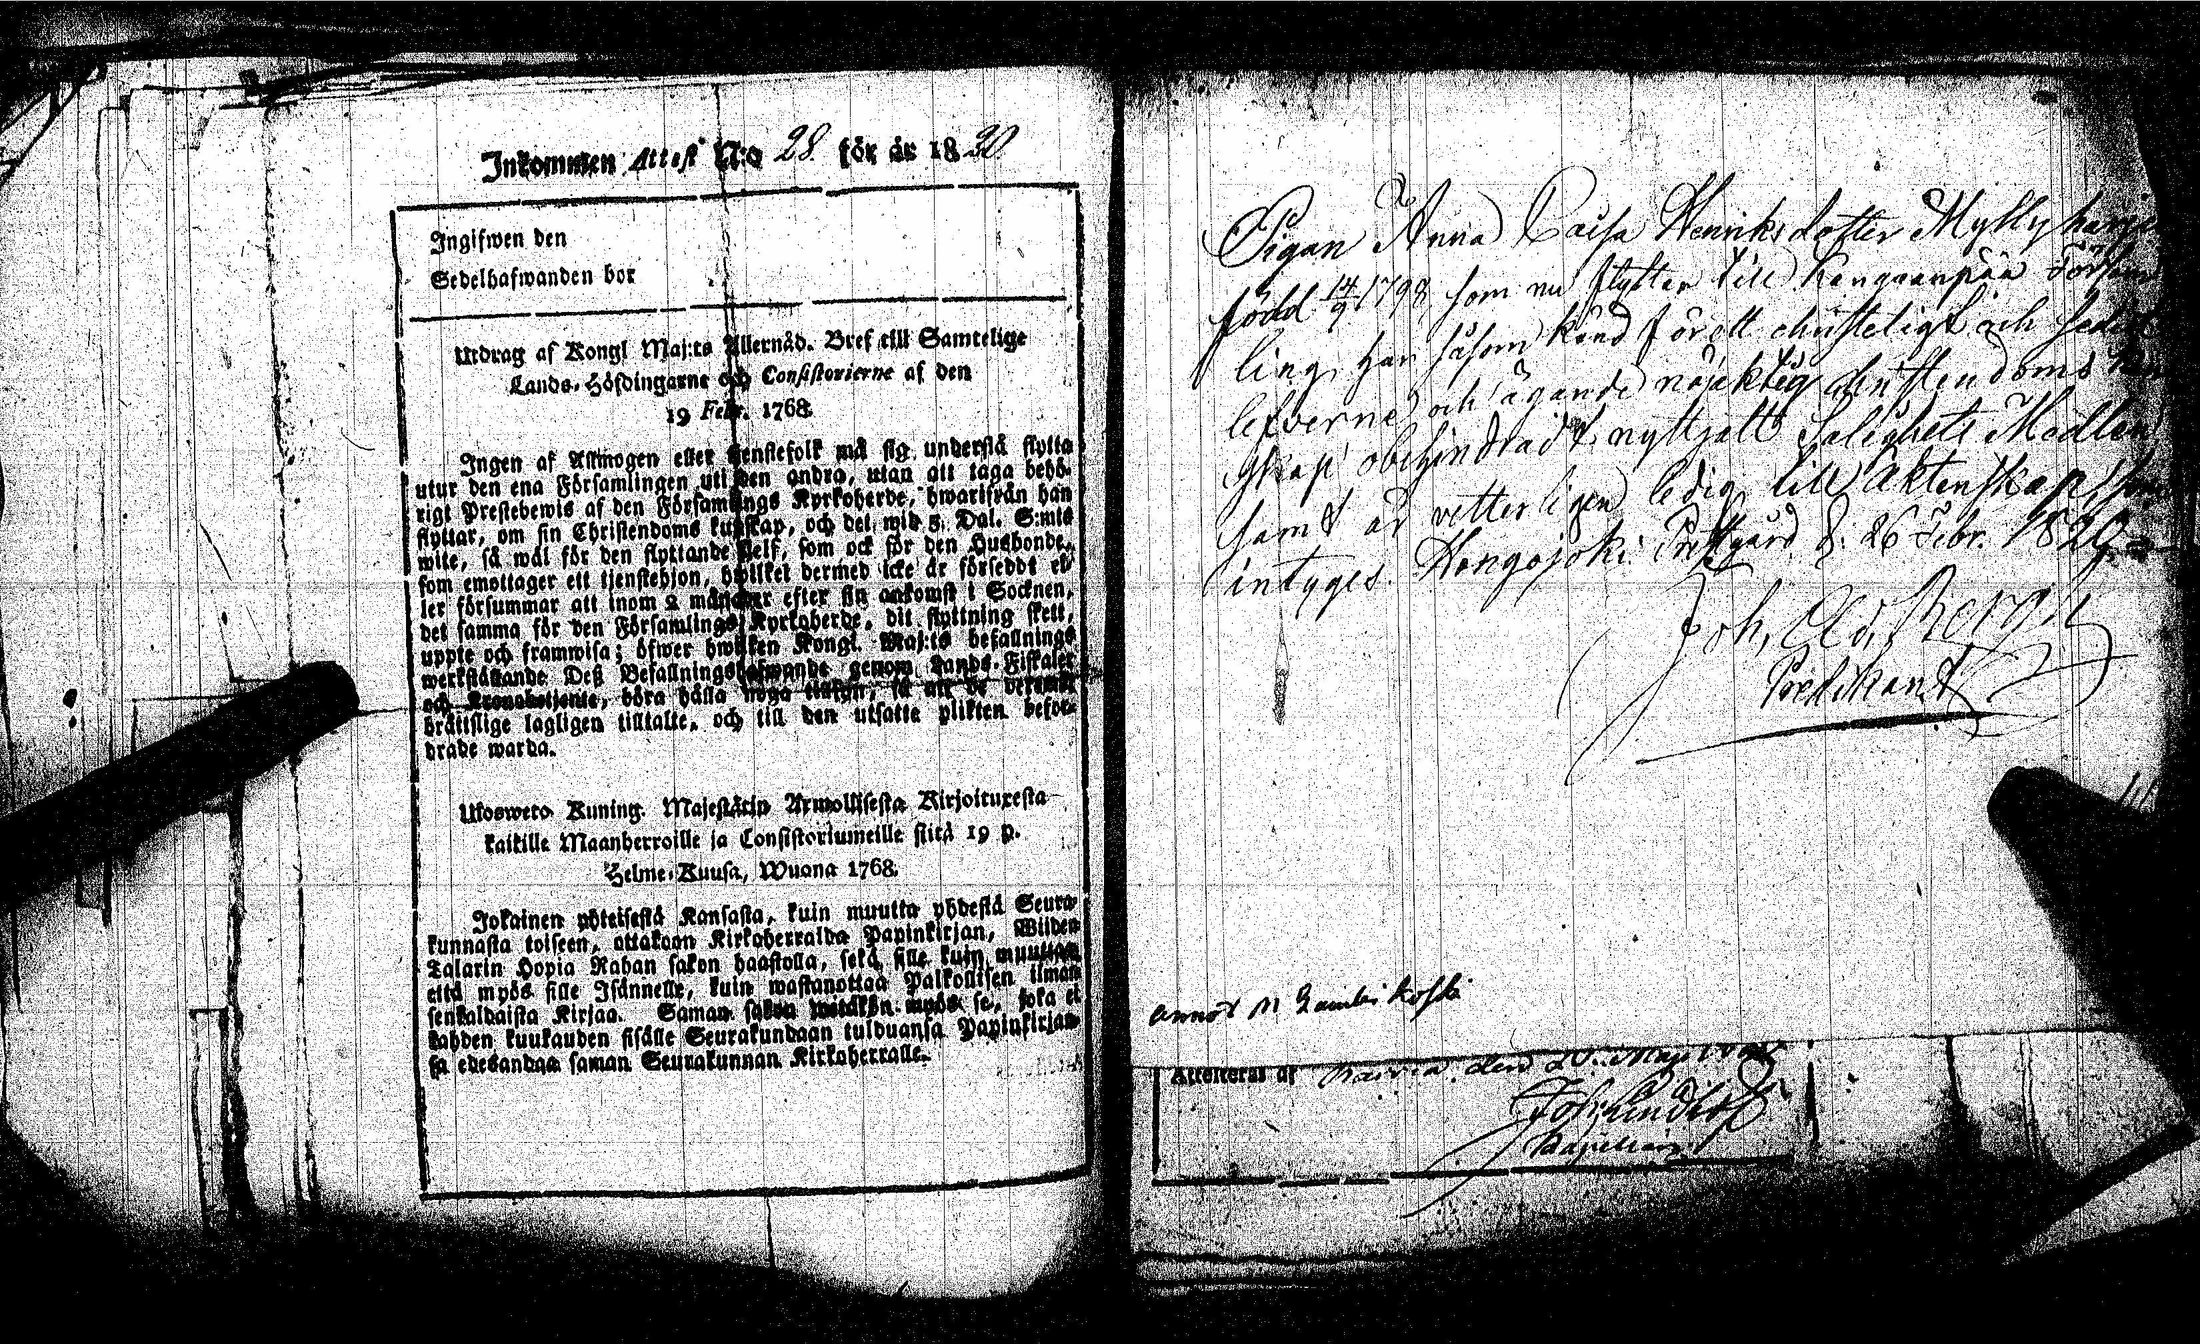 Inkommen Attest N:o 28 för år 1830
Ingifwen den
Sedelhafwanden bor
Utdrag af Kongl Maj:ts Allernåd. Bref till Samtelige
Lands-Höfdingarne och Consistorierne af den
19 Febr. 1768.
Ingen af Allmogen eller tjenstefolk må sig understå flytta
utur den ena Församlingen uti den andra, utan att taga behö-
rigt Prestebewis af den Församlings Kyrkoherde, hwarifrån han
flyttar, om sin Christendoms kunskap, och det wid 5. Dal. S:mts
wite, så wäl för den flyttande sjelf, som ock för den Husbonde,
som emottager ett tjenstehjon, hwilket dermed icke är försedt el-
ler försummar att inom 2 månader efter sin ankomst i Socknen,
det samma för den Församlings Kyrkoherde, dit flyttning skett,
uppte och framwisa; öfwer hwilken Kongl. Maj:ts befallnings
werkställande Deß Befallningshafwande genom Lands-Fiskaler
och Kronobetjente, böra hålla noga tillsyn, så att de
brättslige lagligen tilltalte, och till den utsatte plikten befor-
drade warda.
Ulosweto Kuning. Majestätin Armollisesta Kirjoituxesta
kaikille Maanherroille ja Consistoriumeille siitä 19 p.
Helme-Kuusa, Wuona 1768.
Jokainen yhteisestä Kansasta, kuin muutta yhdestä Seura-
kunnasta toiseen, ottakoon Kirkoherralda Papinkirjan, Wiiden
Talarin Hopia Rahan sakon haastolla, sekä sille kuin muuttaa
että myös sille Isännelle, kuin wastanottaa Palkollisen ilman
senkaldaista Kirjaa. Saman sakon wetäkön myös se, joka ei
kahden kuukauden sisälle Seurakundaan tulduansa Papinkirjan-
sa edesandaa saman Seurakunnan Kirkoherralle.
Pigan Anna Caisa Henriksdotter Myllyharju
född 14/9 1798, som nu flyttar till Kangaanpää Försam
ling, har såsom känd för ett christeligt och
lefverne och ägande nöjaktig christendoms
skap obehindradt nyttjatt Salighets Medlen
samt är vetterligen ledig till äktenskap,
intyges. Hongojoki Prestgård d. 26 Febr. 1829.
Joh. Ad. Bergh
Predikant
Attesteras af
Kapellan